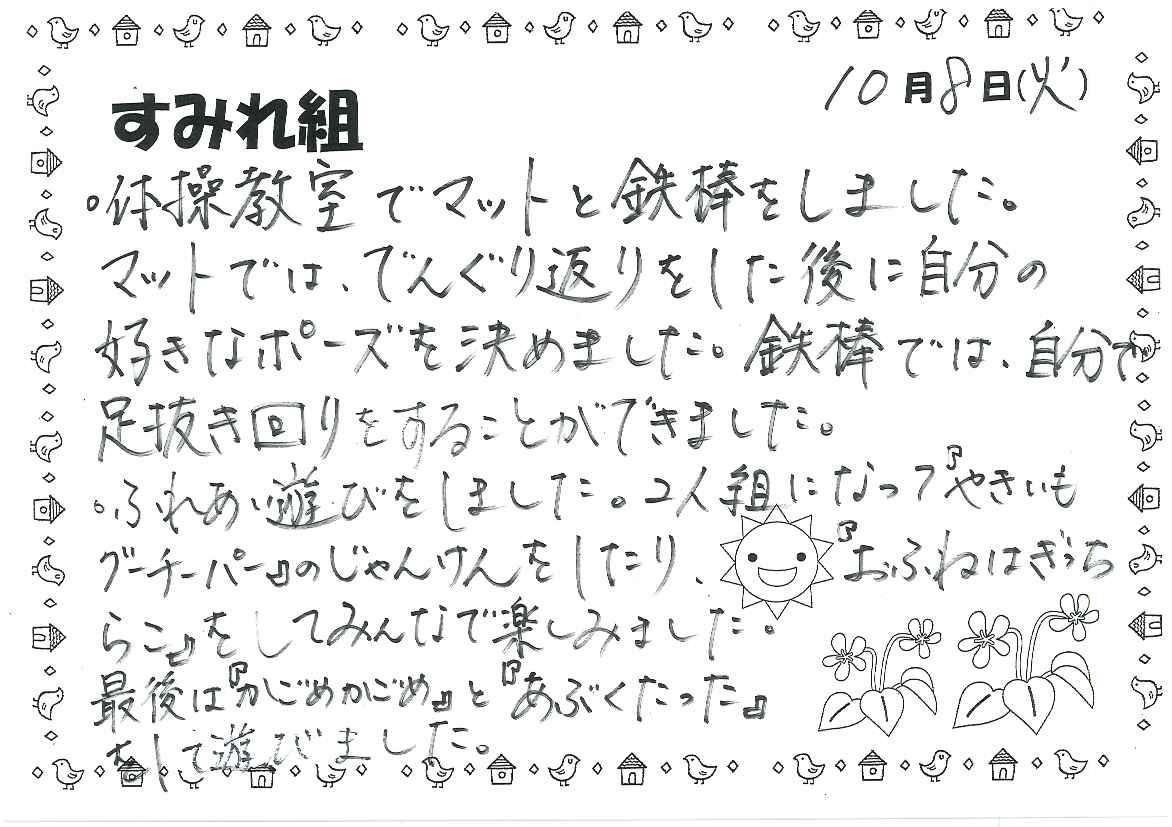 10月8日(火)
すみれ組
○体操教室でマットと鉄棒をしました。
マットでは、でんぐり返りをした後に自分の
好きなポーズを決めました。鉄棒では、自分で
足抜き回りをすることができました。
○ふれあい遊びをしました。2人組になって『やきいも
グーチーパー』のじゃんけんをしたり、『おふねはぎっち
らこ』をしてみんなで楽しみました。
最後は『かごめかごめ』と『あぶくたった』
をして遊びました。